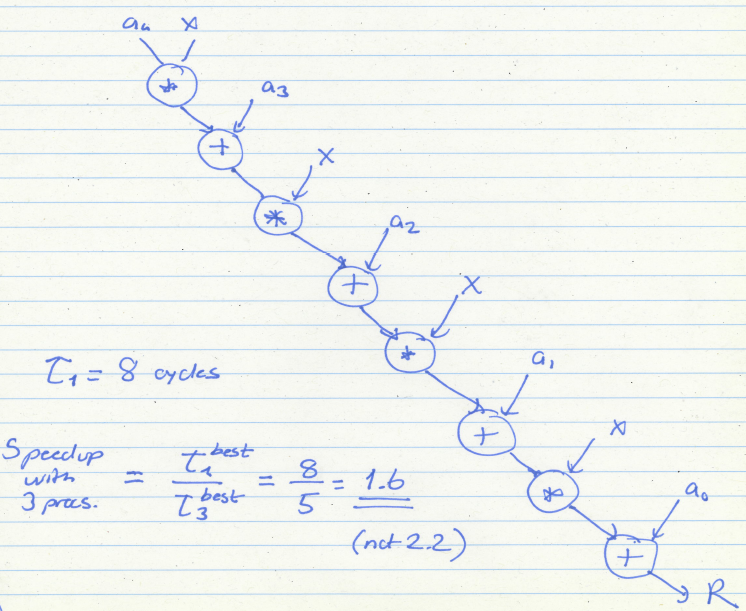 a₄ x
*
a₃
+
x
*
a₂
+
x
*
a₁
+
x
*
a₀
+
R
T₁ = 8 cycles
Speedup with 3 procs. = T₁^best / T₃^best = 8/5 = 1.6
(not 2.2)